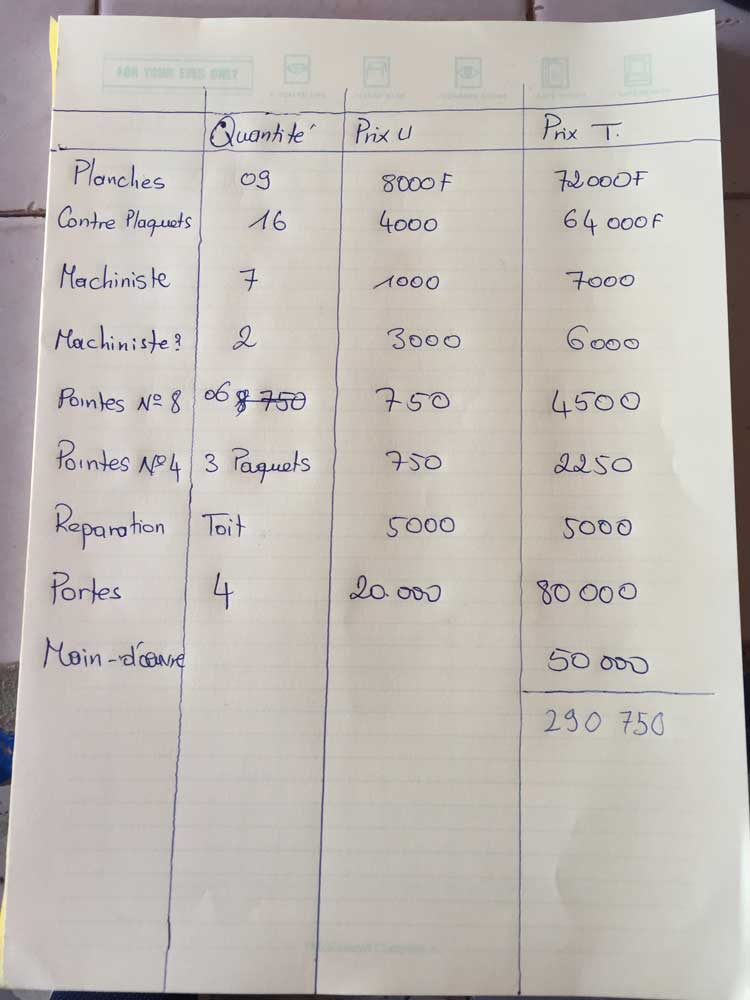 FOR YOUR EYES ONLY
Quantité Prix U Prix T.
Planches 09 8000F 72000F
Contre Plaquets 16 4000 64 000F
Machiniste 7 1000 7000
Machiniste? 2 3000 6000
Pointes N° 8 06 8 750 750 4500
Pointes N° 4 3 Paquets 750 2250
Reparation Toit 5000 5000
Portes 4 20.000 80 000
Main-d'œuvre 50 000
290 750